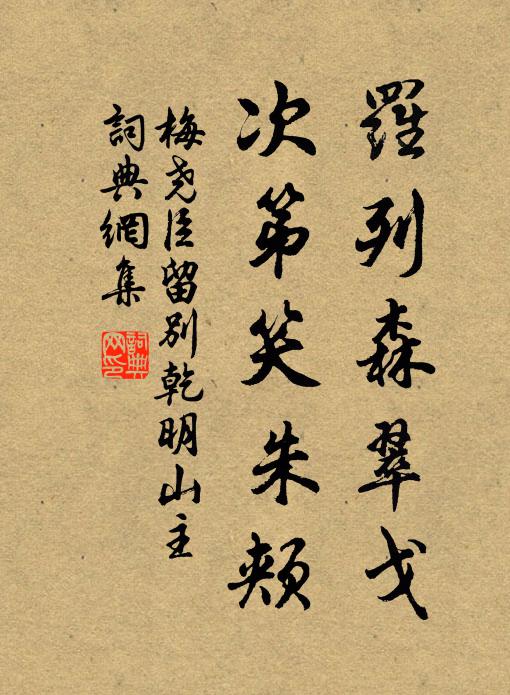 羅列森翠戈
次第笑朱頰
梅尧臣留别乾明山主
詞典網集
詞典网印